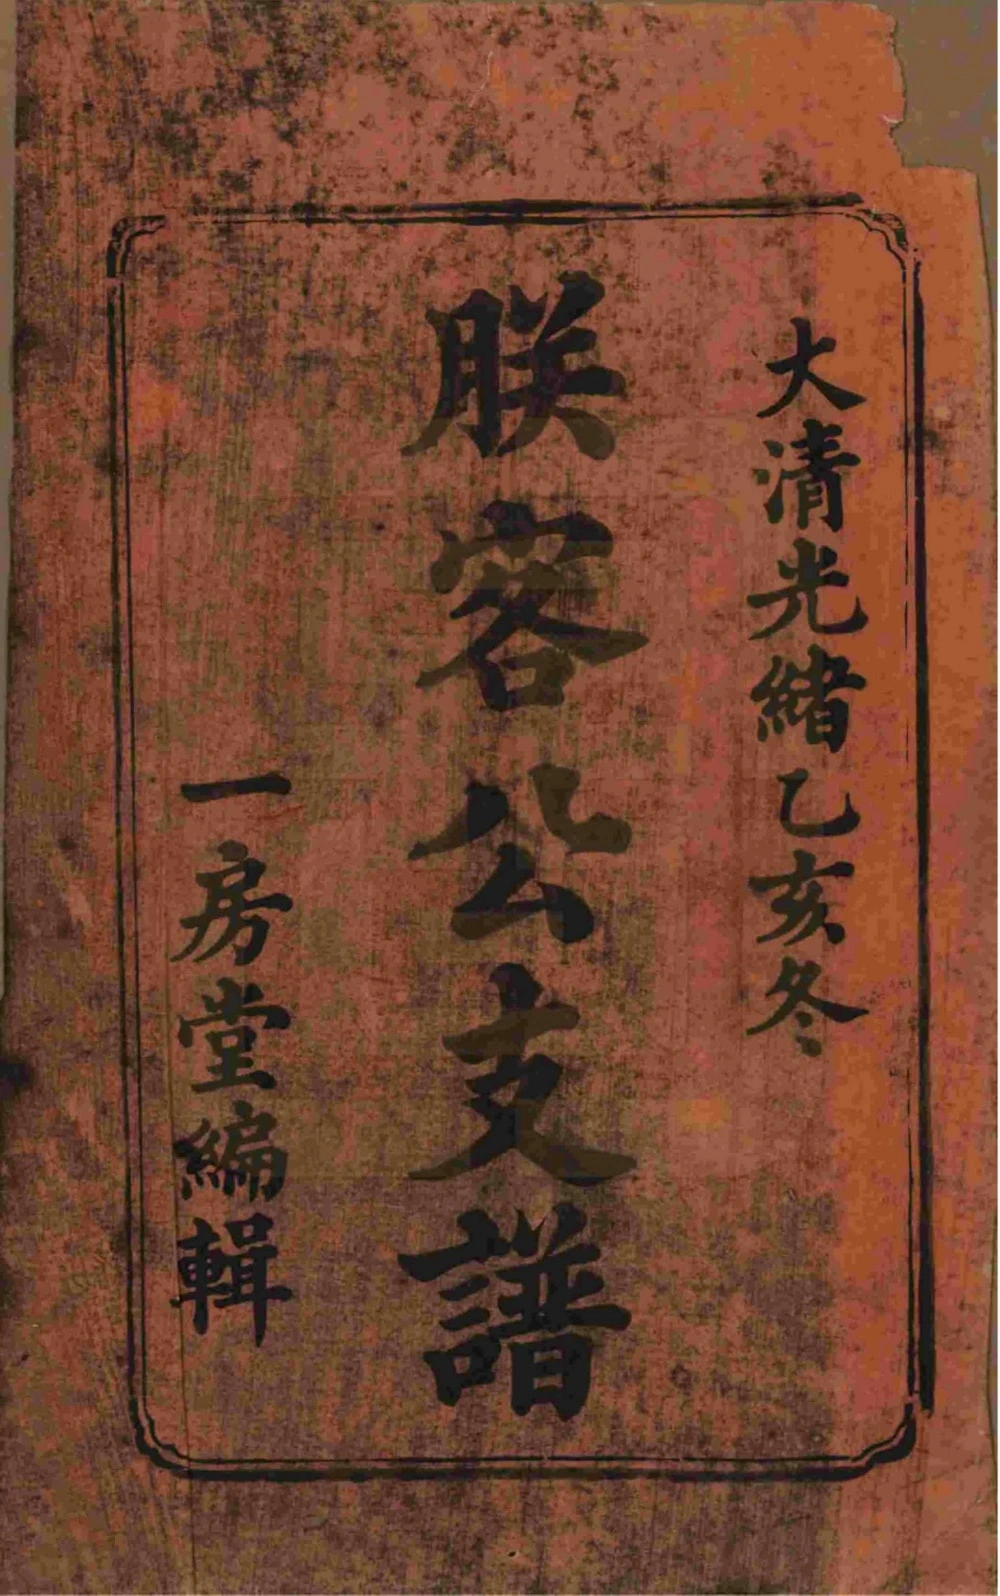 大清光緒乙亥冬
朕容公支譜
一房堂編輯